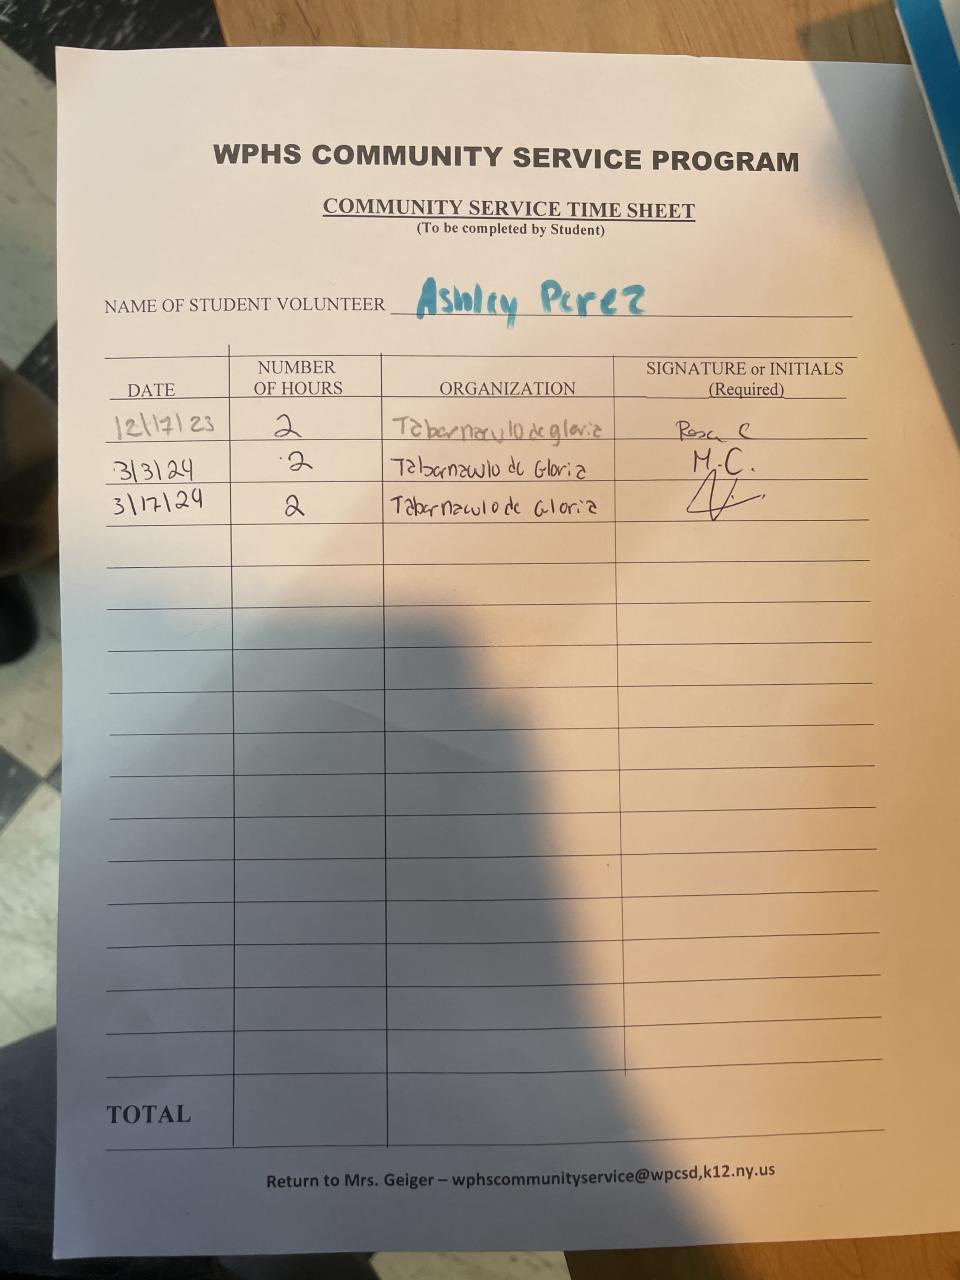 WPHS COMMUNITY SERVICE PROGRAM
COMMUNITY SERVICE TIME SHEET
(To be completed by Student)
NAME OF STUDENT VOLUNTEER Ashley Perez
DATE NUMBER OF HOURS ORGANIZATION SIGNATURE or INITIALS (Required)
12/17/23 2 Tabernaculo de gloria Rosa C
3/3/24 2 Tabernaculo de Gloria M.C.
3/17/24 2 Tabernaculo de Gloria
TOTAL
Return to Mrs. Geiger – wphscommunityservice@wpcsd,k12.ny.us